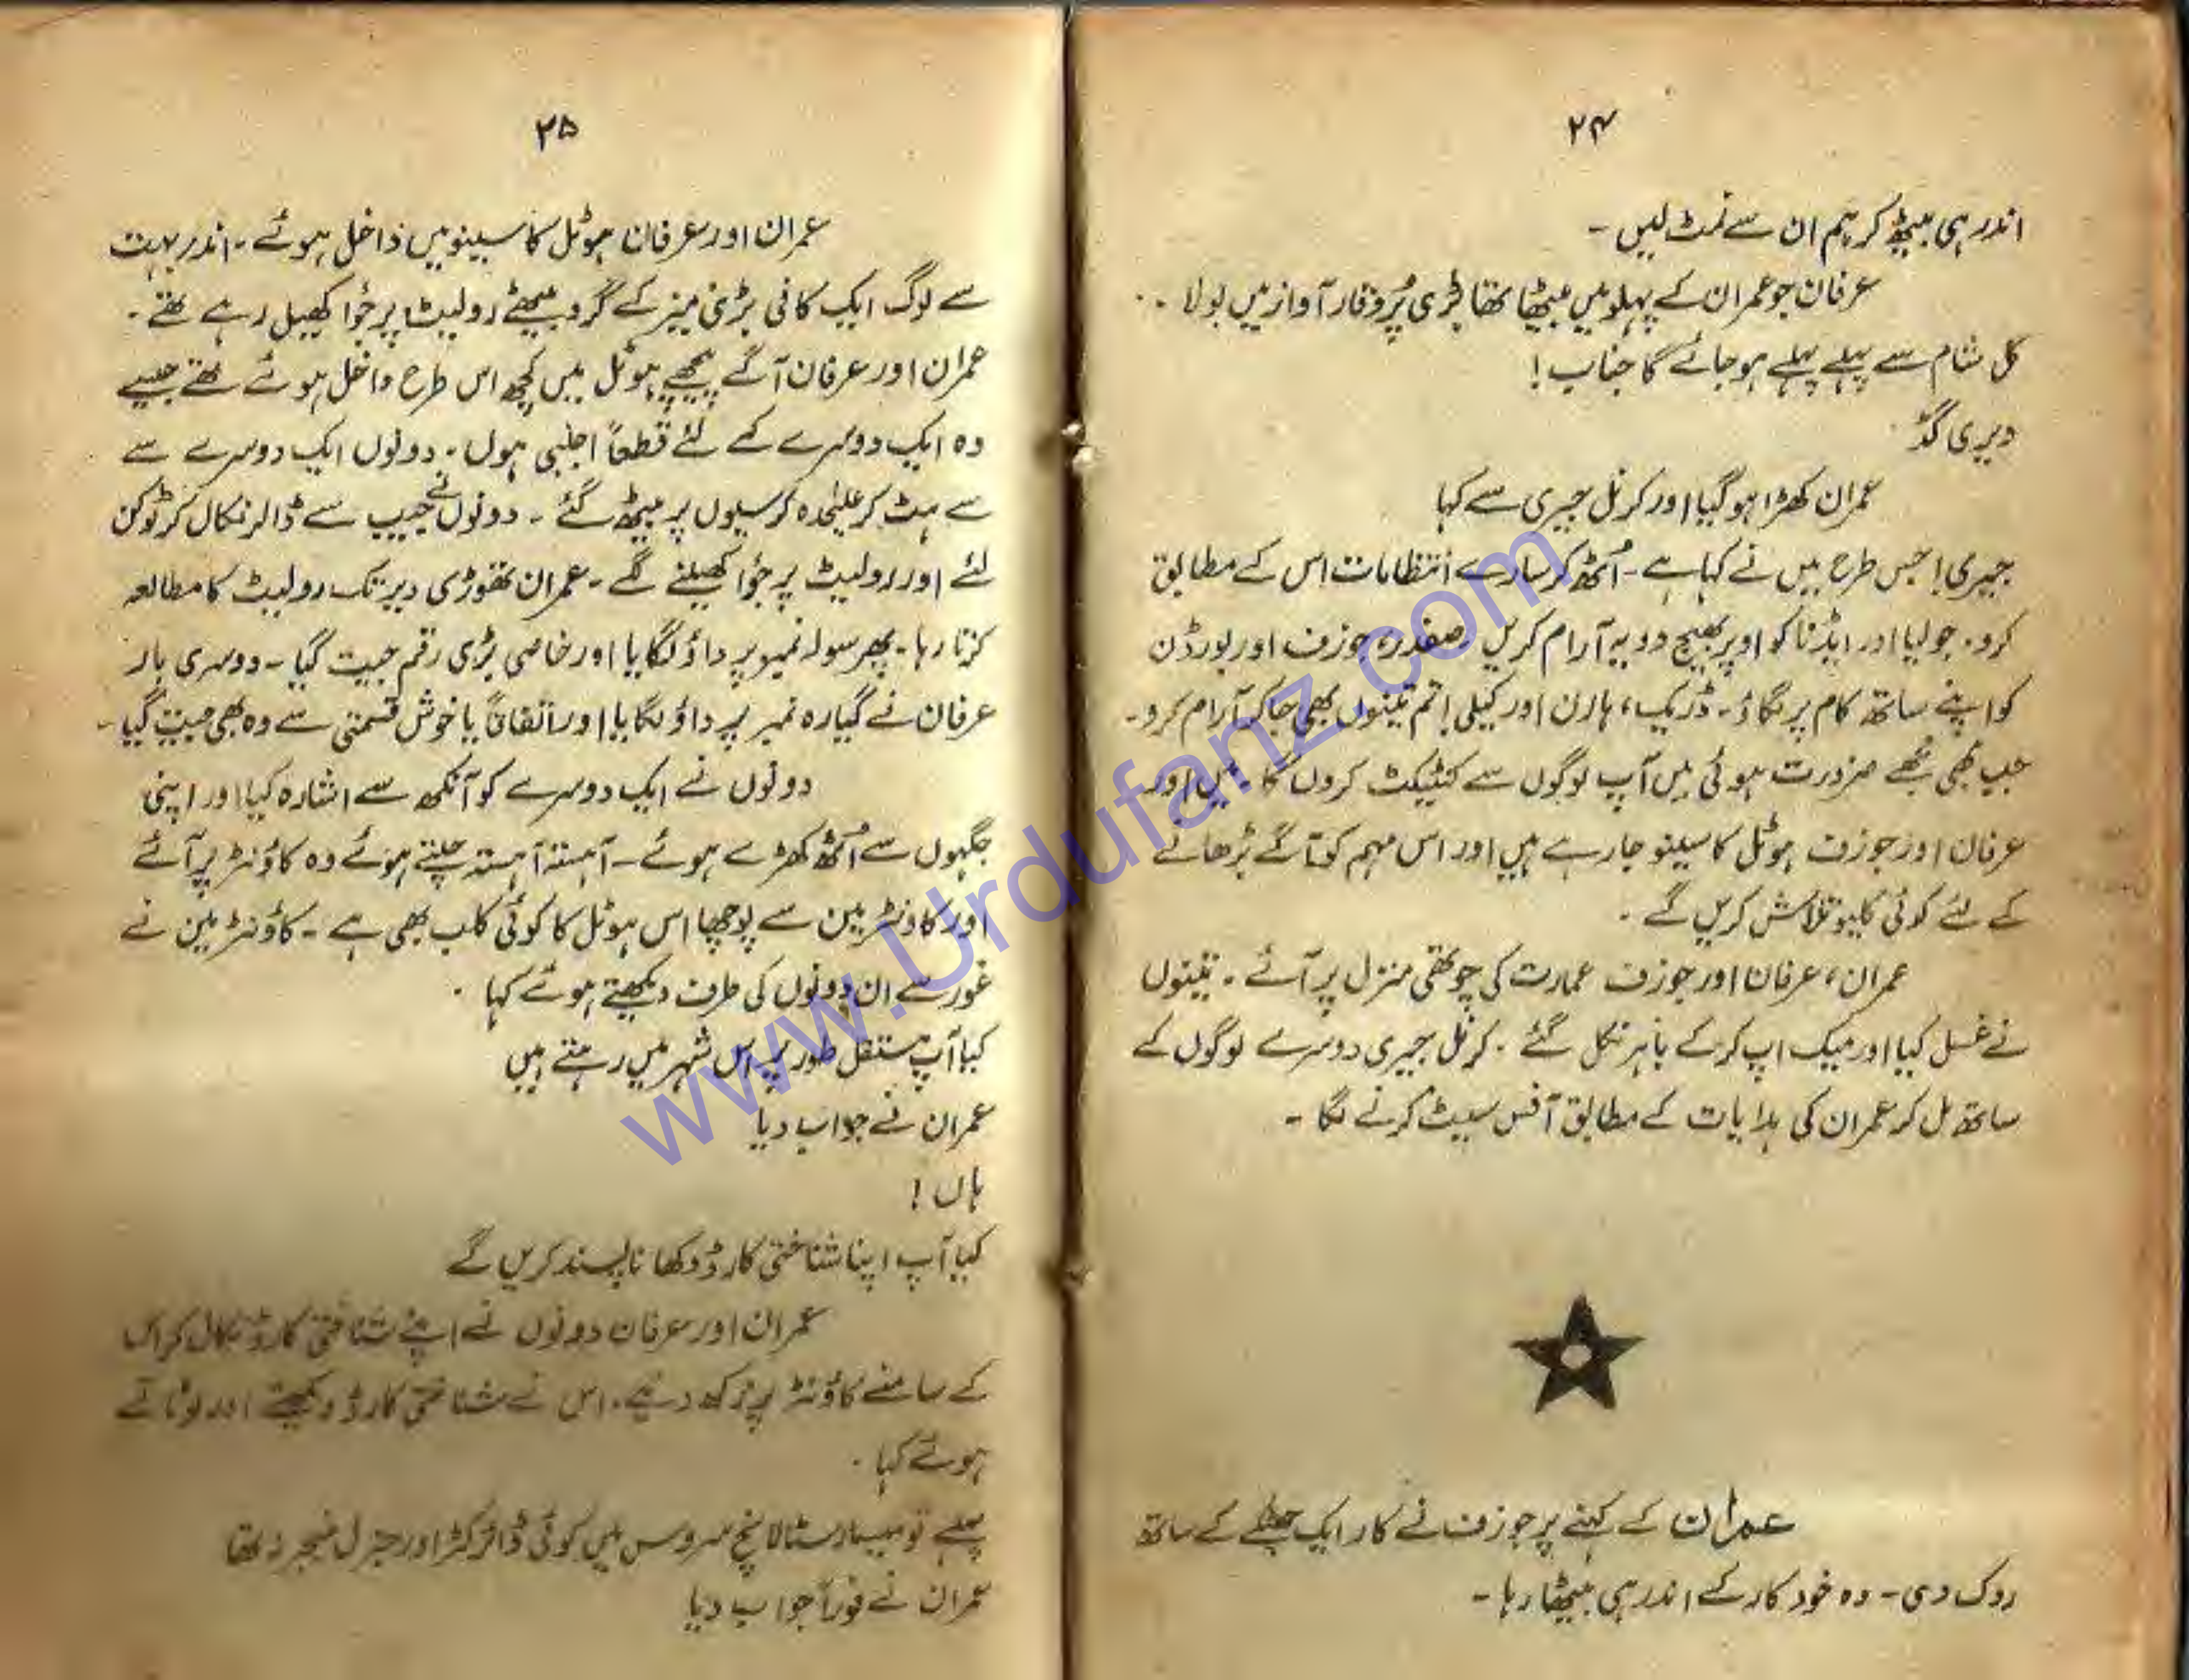 ۲۴
اندر ہی بیٹھ کر ہم ان سے نمٹ لیں ۔
عرفان جو عمران کے پہلو میں بیٹھا تھا بڑی پُروقار آواز میں بولا ۔۔
کل شام سے پہلے پہلے ہو جائے گا جناب !
ویری گڈ
عمران کھڑا ہو گیا اور کرنل جیری سے کہا
جیری ! جس طرح میں نے کہا ہے ۔ اُٹھ کر سارے انتظامات اس کے مطابق
کرو ۔ جولیا اور ایڈنا کو اوپر بھیج دو یہ آرام کریں ۔ صفدر ، جوزف اور بورڈن
کو اپنے ساتھ کام پر لگاؤ ۔ ڈریک ، ہارن اور کیلی ! تم تینوں بھی جا کر آرام کرو ۔
جب بھی مجھے ضرورت ہوئی میں آپ لوگوں سے کنٹیکٹ کروں گا ۔ میں اور
عرفان اور جوزف ہوٹل کاسینو جا رہے ہیں اور اس مہم کو آگے بڑھانے
کے لئے کوئی کلیو تلاش کریں گے ۔
عمران ، عرفان اور جوزف عمارت کی چوتھی منزل پر آئے ۔ تینوں
نے غسل کیا اور میک اپ کر کے باہر نکل گئے ۔ کرنل جیری دوسرے لوگوں کے
ساتھ مل کر عمران کی ہدایات کے مطابق آفس سیٹ کرنے لگا ۔
عمران کے کہنے پر جوزف نے کار ایک جھٹکے کے ساتھ
روک دی ۔ وہ خود کار کے اندر ہی بیٹھا رہا ۔
۲۵
عمران اور عرفان ہوٹل کاسینو میں داخل ہوئے ۔ اندر بہت
سے لوگ ایک کافی بڑی میز کے گرد بیٹھے رولیٹ پر جُوا کھیل رہے تھے ۔
عمران اور عرفان آگے پیچھے ہوٹل میں کچھ اس طرح داخل ہوئے تھے جیسے
وہ ایک دوسرے کے لئے قطعاً اجنبی ہوں ۔ دونوں ایک دوسرے سے
سے ہٹ کر علیٰحدہ کرسیوں پر بیٹھ گئے ۔ دونوں نے جیب سے ڈالر نکال کر ٹوکن
لئے اور رولیٹ پر جُوا کھیلنے لگے ۔ عمران تھوڑی دیر تک رولیٹ کا مطالعہ
کرتا رہا ۔ پھر سولہ نمبر پر داؤ لگایا اور خاصی بڑی رقم جیت گیا ۔ دوسری بار
عرفان نے گیارہ نمبر پر داؤ لگایا اور اتفاقاً یا خوش قسمتی سے وہ بھی جیت گیا ۔
دونوں نے ایک دوسرے کو آنکھ سے اشارہ کیا اور اپنی
جگہوں سے اُٹھ کھڑے ہوئے ۔ آہستہ آہستہ چلتے ہوئے وہ کاؤنٹر پر آئے
اور کاونٹر مین سے پوچھا اس ہوٹل کا کوئی کلب بھی ہے ۔ کاؤنٹر مین نے
غور سے ان دونوں کی طرف دیکھتے ہوئے کہا ۔
کیا آپ مستقل طور پر اس شہر میں رہتے ہیں
عمران نے جواب دیا
ہاں !
کیا آپ اپنا شناختی کارڈ دکھانا پسند کریں گے
عمران اور عرفان دونوں نے اپنے شناختی کارڈ نکال کر اس
کے سامنے کاؤنٹر پر رکھ دیئے ۔ اس نے شناختی کارڈ دیکھتے اور لوٹاتے
ہوئے کہا ۔
پہلے تو سروس میں کوئی ڈائرکٹر اور جنرل منیجر نہ تھا
عمران نے فوراً جواب دیا
www.Urdufanz.com